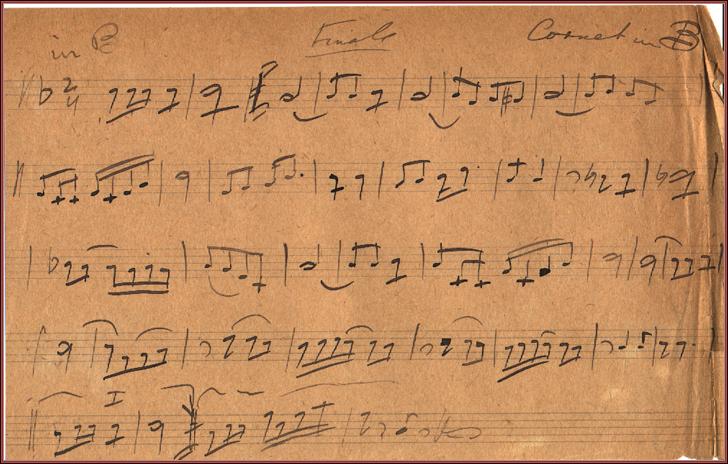 in B Finale Cornet in B
2
4